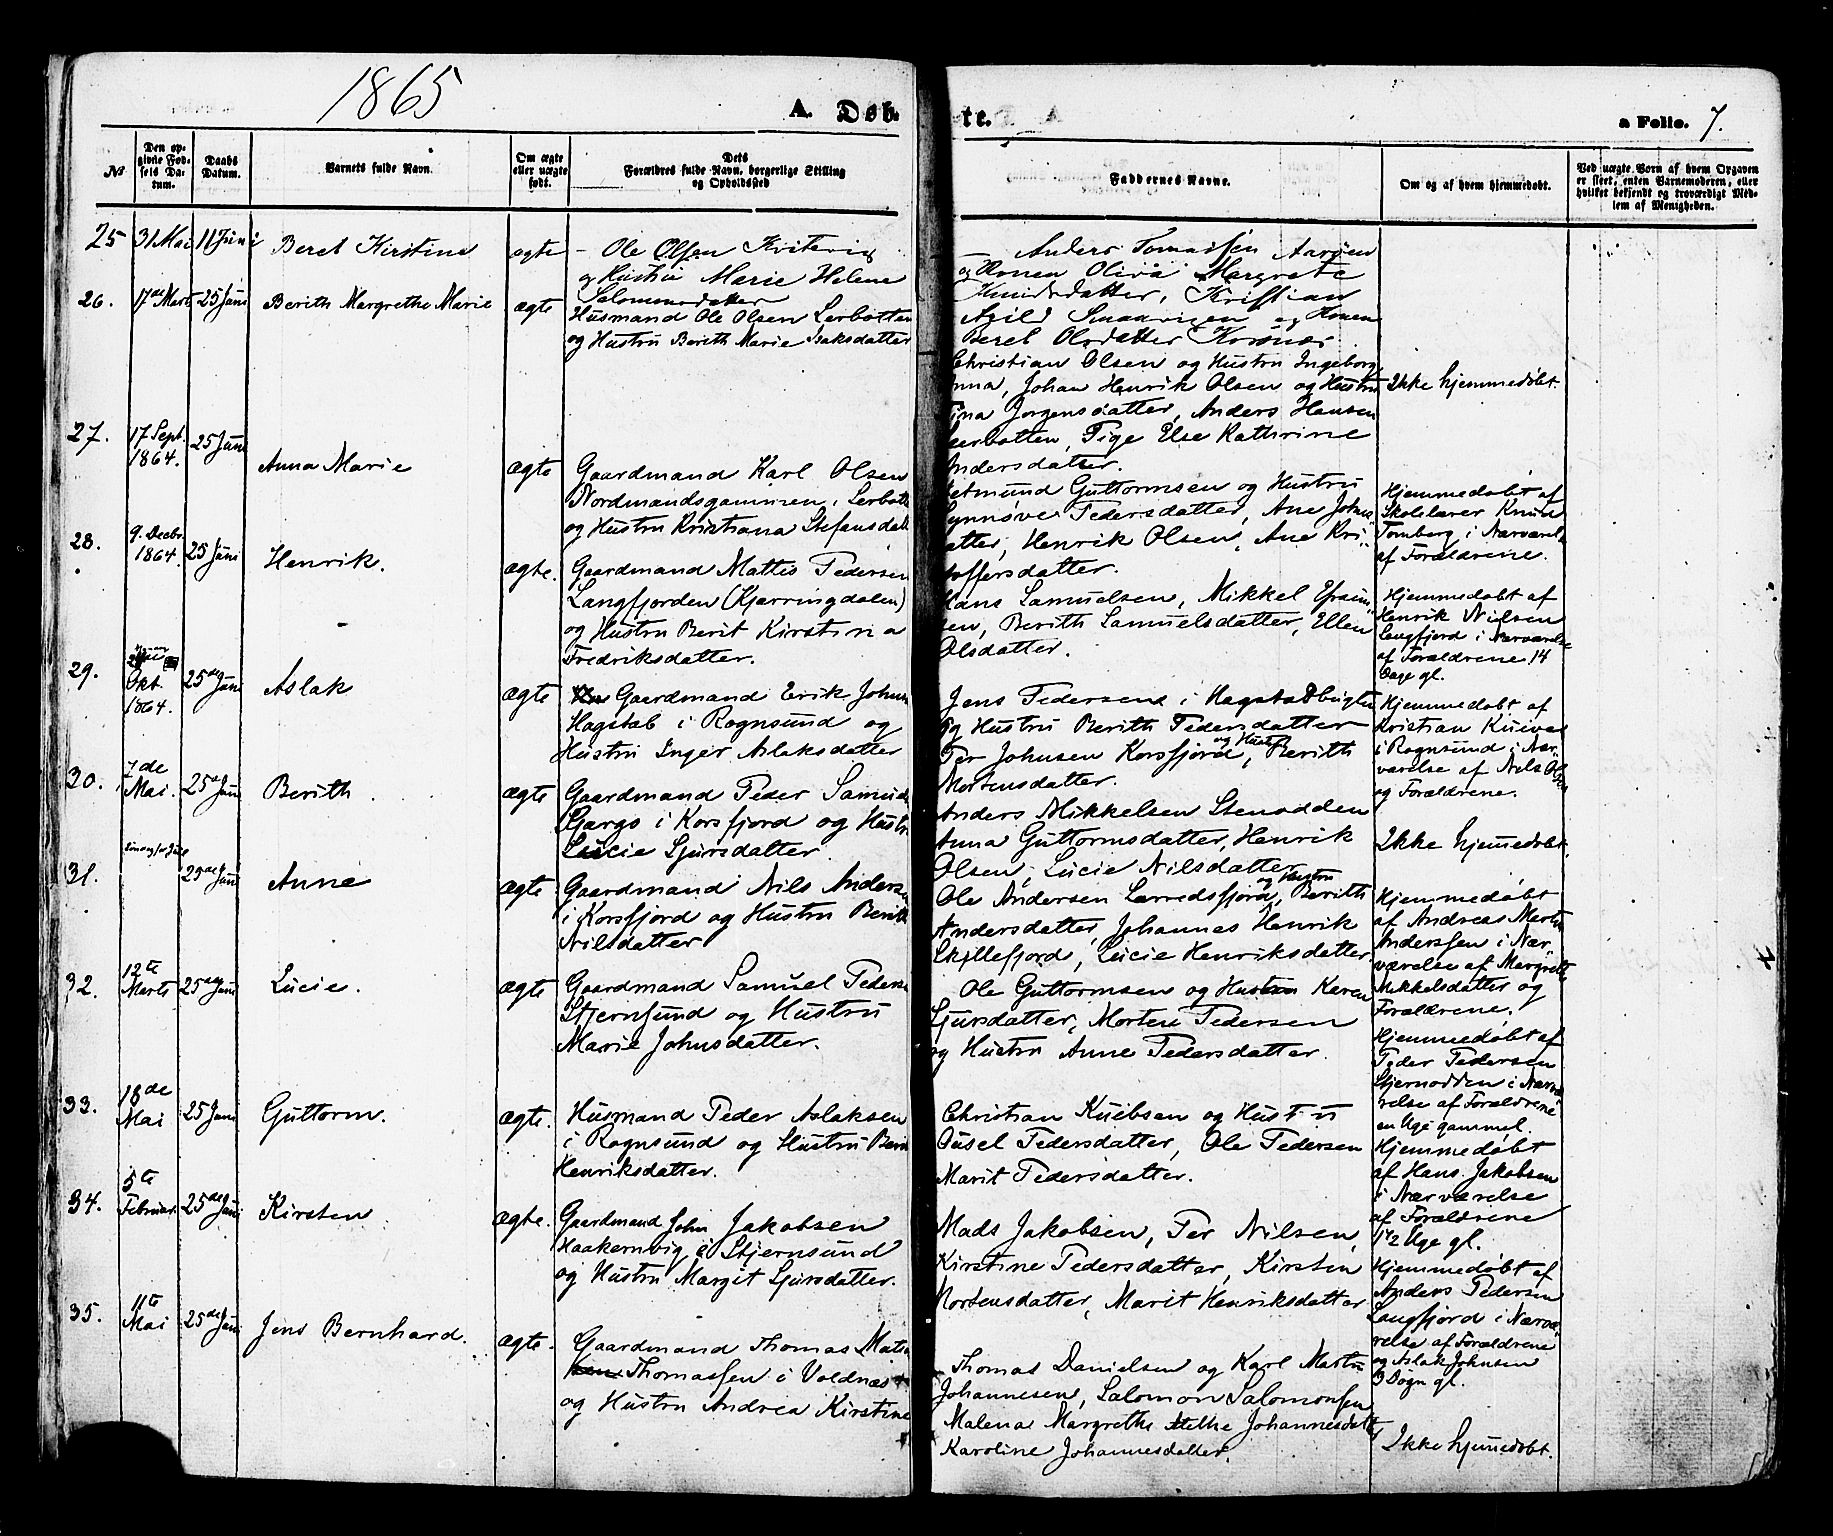 1865
A. Døb-
te.
a Folio. 7.
№
Den op-
givne Fød-
sels Da-
tum.
Daabs
Datum.
Barnets fulde Navn.
Om ægte
eller uægte
født.
Dets
Forældres fulde Navn, borgerlige Stilling
og Opholdssted
Faddernes Navne.
Om og af hvem hjemmedøbt.
Ved uægte Børn af hvem Opgaven
er skeet, enten Barnemoderen, eller
hvilket bekjendt og troværdigt Med-
lem af Menigheden.
25 31 Mai 11 Juni Beret Kirstine ægte
– Ole Olsen Kvitevig
og Hustru Marie Helene
Salomonsdatter
– Anders Tomassen Aarøen
og Konen Oliva Margrete
Knudsdatter, Kristian
Beret Olsdatter Korsnæs
26. 17de Marts 25 Juni Berith Margrethe Marie ægte
Husmand Ole Olsen Lerbotten
og Hustru Berith Marie Isaksdatter
Christian Olsen og Hustru Ingeborg
Anna, Johan Henrik Olsen og Hustru
Tina Jørgensdatter, Anders Hansen
Lerbotten, Pige Else Kathrine
Andersdatter.
Ikke hjemmedøbt.
27. 17 Sept. 1864. 25 Juni Anna Marie ægte
Gaardmand Karl Olsen
Nordmandsgammen, Lerbott
og Hustru Kristiana Stefansdatt
Guttormsen og Hustru
Synnøve Pedersdatter, Ane Johns
datter, Henrik Olsen, Ane Kri-
stoffersdatter.
Hjemmedøbt af
Skolelærer Knud
Tomberg i Nærværelse
af Forældrene.
28. 9. Decbr. 1864. 25 Juni Henrik. ægte.
Gaardmand Mattis Pedersen
Langfjorden (Kjærringdalen)
og Hustru Berit Kirstina
Fredriksdatter.
Hans Samuelsen, Mikkel
sen, Berith Samuelsdatter, Ellen
Olsdatter.
Hjemmedøbt af
Henrik Nilsen
Langfjord i Nærværelse
af Forældrene 14
Dage gl.
29. Okt. 1864. 25de Juni Aslak ægte
Gaardmand Erik Johns
Hagstab i Rognsund og
Hustru Inger Aslaksdatter
Jens Pedersens i Hagstadbugten
og Hustru Berith Pedersdatter
Per Johnsen Korsfjord, og Hustr Berith
Mortensdatter.
Hjemmedøbt af
Kristian
i Rognsund i Nær-
værelse af Nils Olsen
og Forældrene.
30. 7de Mai. 25de Juni Berith ægte
Gaardmand Peder Samuels
i Korsfjord og Hustru
Lucie Sjursdatter.
Anders Mikkelsen Stenodden
Anna Guttormsdatter, Henrik
Olsen, Lucie Nilsdatter
Ikke hjemmedøbt.
31. 25de Juni Anne ægte
Gaardmand Nils Anders
i Korsfjord og Hustru Berith
Nilsdatter
Ole Andersen Lerredsfjord, og Hustru Berith
Andersdatter, Johannes Henrik
Skillefjord, Lucie Henriksdatter.
Hjemmedøbt
af Andreas Martin
Anderssen i Nær-
værelse af Margrethe
Mikkelsdatter og
Forældrene.
32. 12te Marts 25de Juni Lucie. ægte
Gaardmand Samuel Peders
Stjernsund og Hustru
Marie Johnsdatter.
Ole Guttormsen og Hustru Karen
Sjursdatter, Morten Pedersen
og Hustru Anne Pedersdatter.
Hjemmedøbt af
Peder Pedersen
Stjernodden i Nærvæ-
relse af Forældrene
en Uge gammel.
33. 18de Mai 25 Juni Guttorm. ægte.
Husmand Peder Aslaksen
i Rognsund og Hustru Berit
Henriksdatter.
Christian og Hustru
Pedersdatter, Ole Pedersen
Marit Pedersdatter.
Hjemmedøbt
af Hans Jakobsen
i Nærværelse
af Forældrene
1½ Uge gl.
34. 5te Februar. 25de Juni Kirsten ægte.
Gaardmand John Jakobsen
Haakernvig i Stjernsund
og Hustru Margit Sjursdatter.
Mads Jakobsen, Per Nilsen,
Kirstine Pedersdatter, Kirsten
Mortensdatter, Marit Henriksdatter
Hjemmedøbt af
Anders Pedersen
Langfjord i Nærvæ-
relse af Forældrene
og Aslak Johnsen
3 Døgn gl.
35. 11te Mai 25de Juni Jens Bernhard. ægte.
Gaardmand Thomas Matia
Thomassen i Voldnæs
og Hustru Andrea Kirstine
Thomas Danielsen og Karl Martin
Johannesen, Salomon Salomonsen
Malena Margrethe Johannesdatt
Karoline Johannesdatter.
Ikke hjemmedøbt.